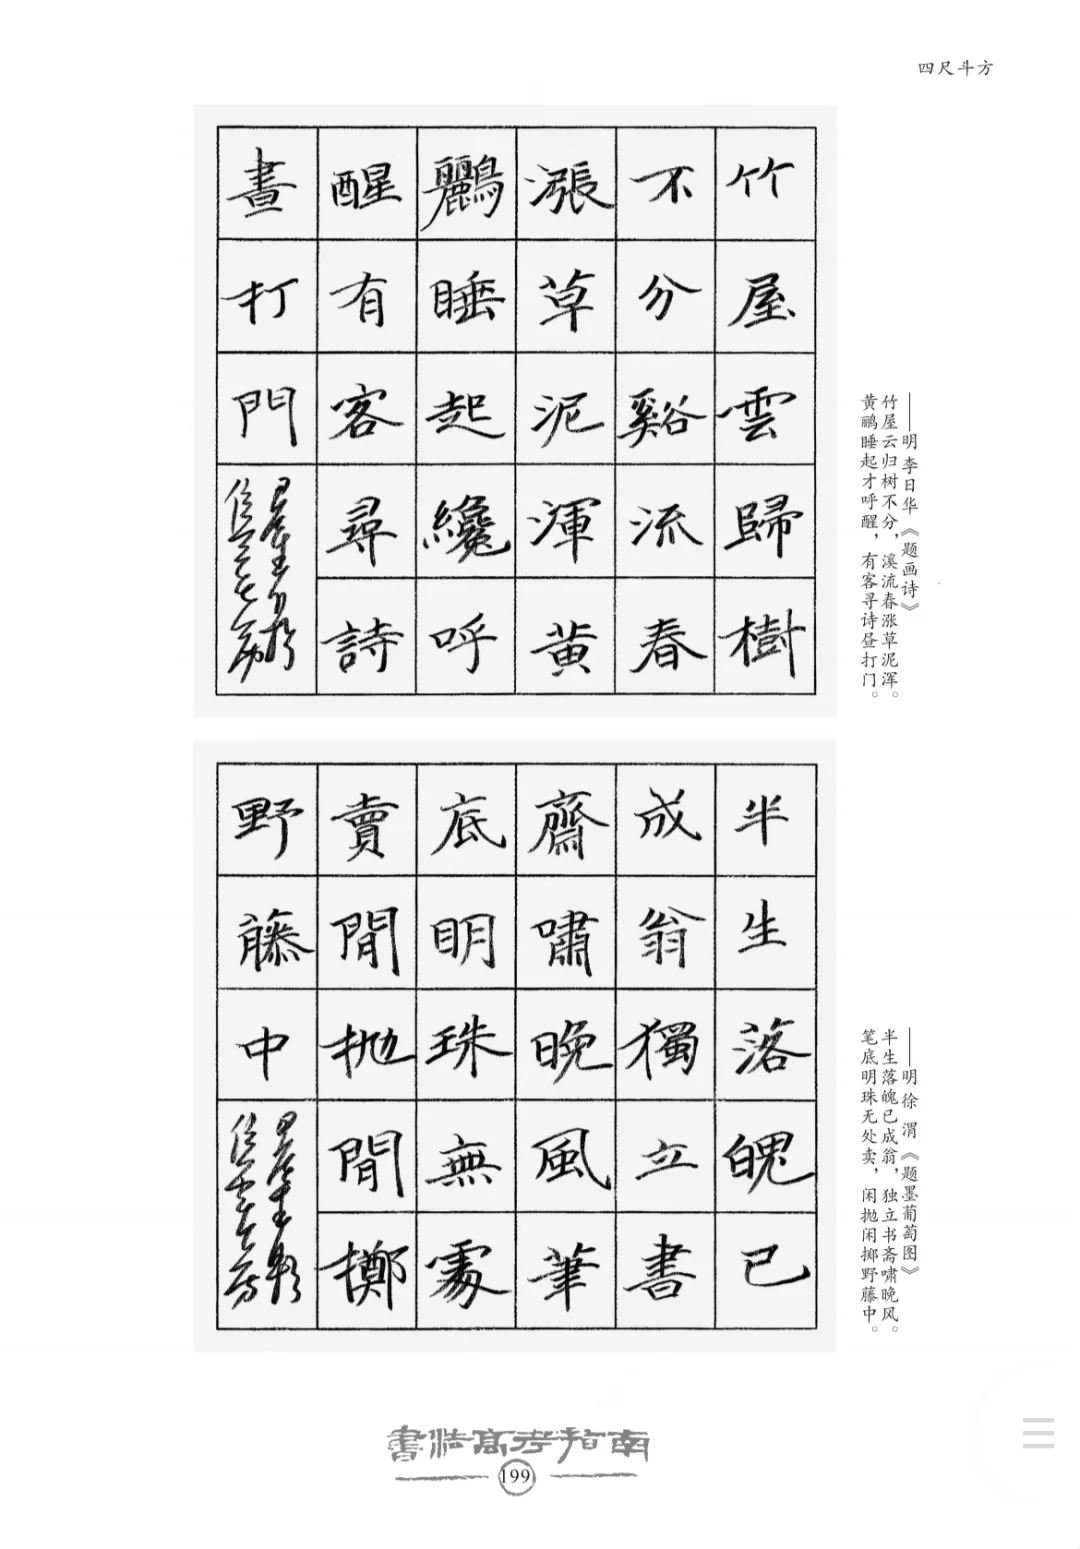 四尺斗方
竹屋雲歸樹
不分谿流春
漲草泥渾黄
鸝睡起纔呼
醒有客尋詩
晝打門
——明 李日华《题画诗》
竹屋云归树不分，溪流春涨草泥浑。
黄鹂睡起才呼醒，有客寻诗昼打门。
半生落魄已
成翁獨立書
齋嘯晚風筆
底明珠無處
賣閒抛閒擲
野藤中
——明 徐渭《题墨葡萄图》
半生落魄已成翁，独立书斋啸晚风。
笔底明珠无处卖，闲抛闲掷野藤中。
書法高考指南
199